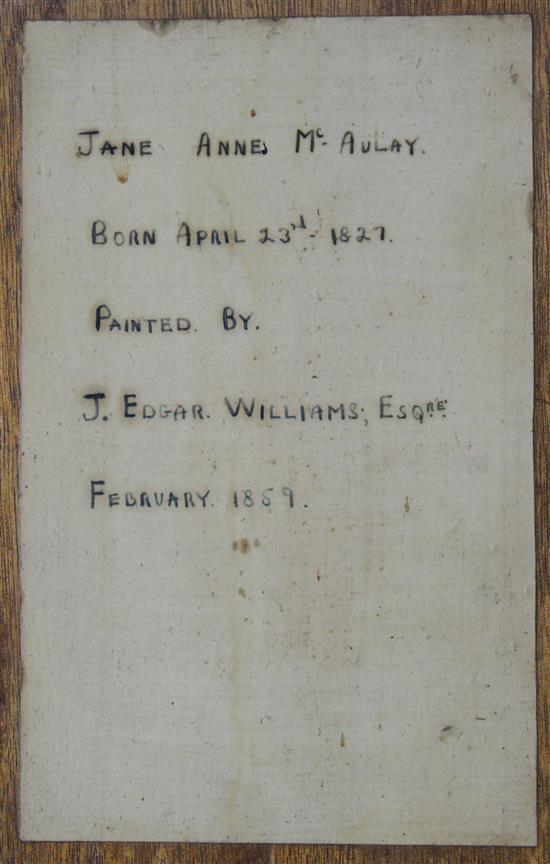 JANE ANNE, Mc AULAY.
BORN APRIL 23rd 1827.
PAINTED. BY.
J. EDGAR. WILLIAMS, ESQRE.
FEBRUARY. 1859.